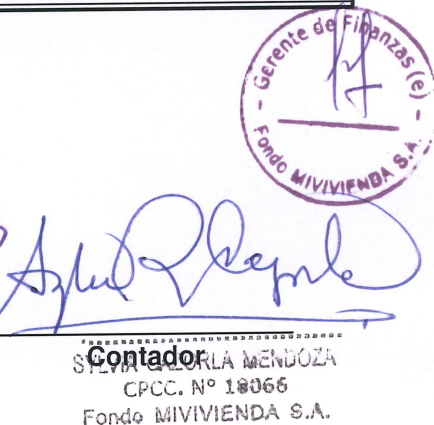 Gerente de Finanzas (e)
Fondo MIVIVIENDA S.A.
Contador
SYLVIA CAZORLA MENDOZA
CPCC. Nº 18066
Fondo MIVIVIENDA S.A.